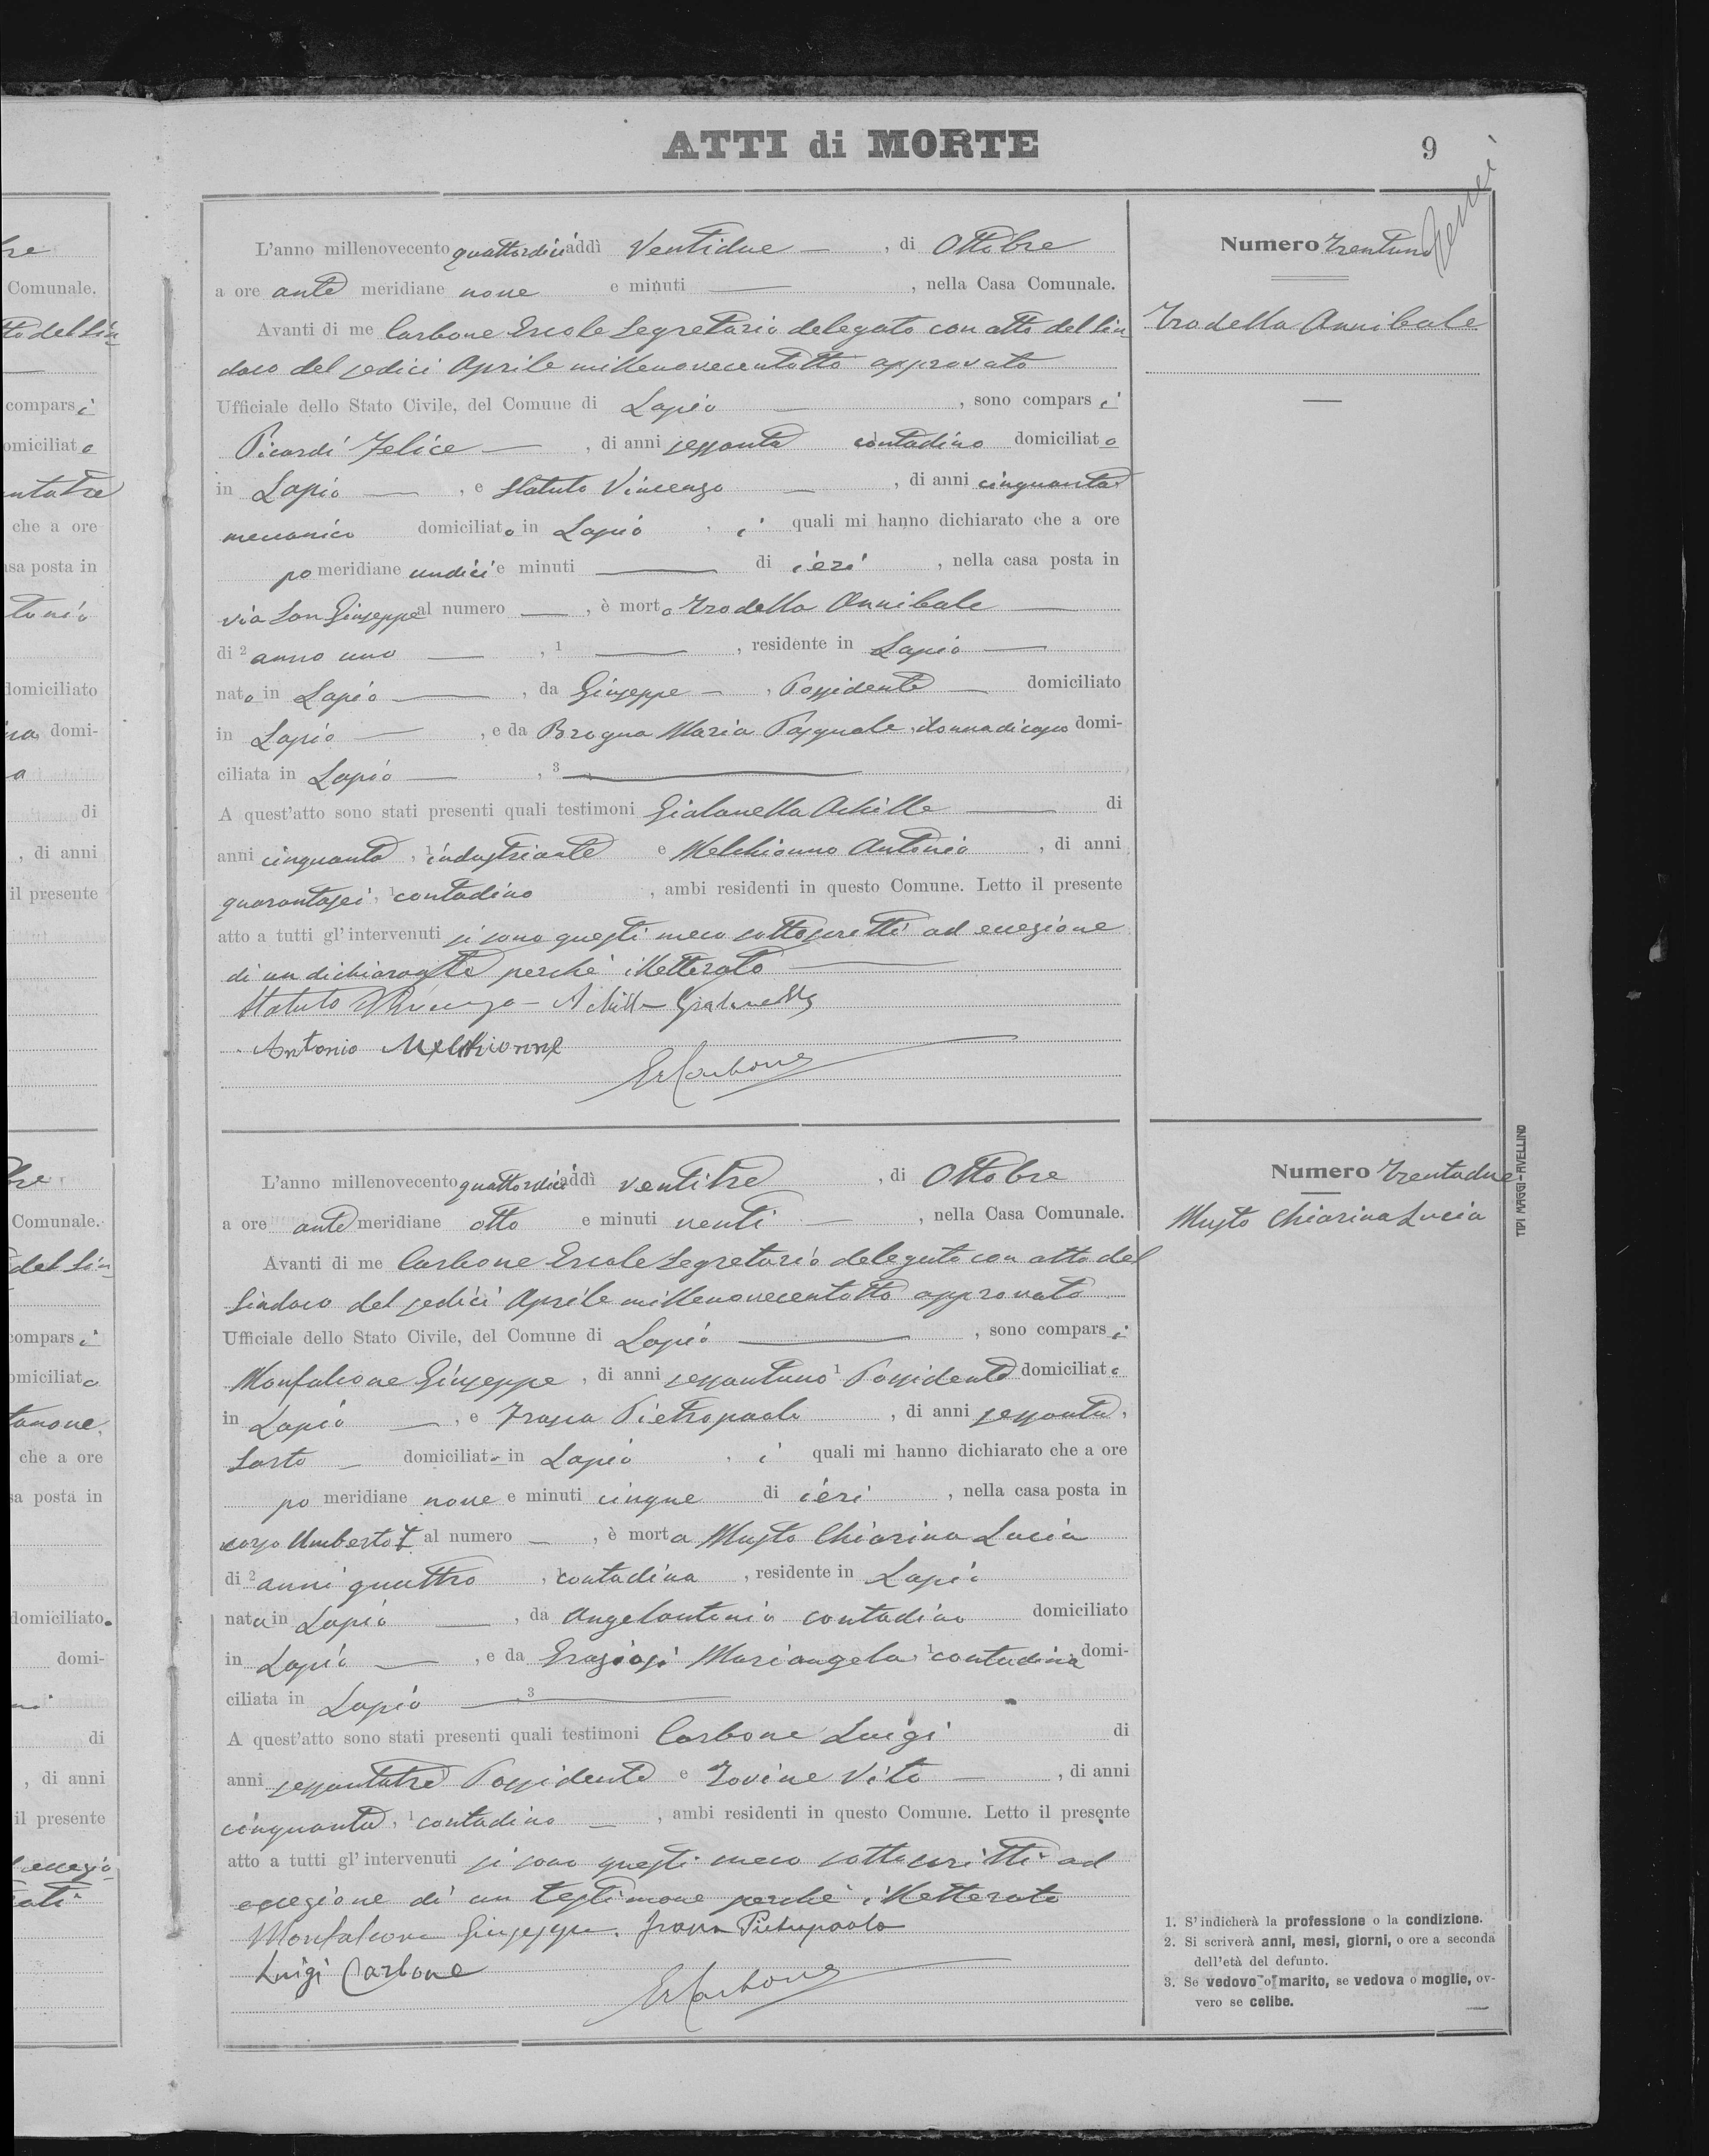 ATTI di MORTE
9
L'anno millenovecento quattordici addì Ventidue — , di Ottobre
a ore ante meridiane nove e minuti — , nella Casa Comunale.
Avanti di me Carbone Ercole Segretario delegato con atto del Sin-
daco del sedici Aprile millenovecentotto approvato
Ufficiale dello Stato Civile, del Comune di Lapio — , sono comparsi
Picardi Felice — , di anni sessanta contadino domiciliato
in Lapio — , e Statuto Vincenzo — , di anni cinquanta
meccanico domiciliato in Lapio , i quali mi hanno dichiarato che a ore
pomeridiane undici e minuti — di ieri , nella casa posta in
via San Giuseppe al numero — , è morto Trodella Annibale —
di 2 anno uno — , 1 — , residente in Lapio —
nato in Lapio — , da Giuseppe — , Possidente — domiciliato
in Lapio — , e da Brogna Maria Pasquale, donna di casa domi-
ciliata in Lapio — , 3 —
A quest'atto sono stati presenti quali testimoni Gialanella Achille — di
anni cinquanta, 1 industriante e Melchionno Antonio , di anni
quarantasei, 1 contadino , ambi residenti in questo Comune. Letto il presente
atto a tutti gl'intervenuti si sono questi meco sottoscritti ad eccezione
di un dichiarante perché illetterato —
Statuto Vincenzo – Achille Gialanella
Antonio Melchionne
ErCarbone
Numero Trentuno
Trodella Annibale
L'anno millenovecento quattordici addì ventitre , di Ottobre
a ore ante meridiane otto e minuti venti — , nella Casa Comunale.
Avanti di me Carbone Ercole Segretario delegato con atto del
Sindaco del sedici Aprile millenovecentotto approvato
Ufficiale dello Stato Civile, del Comune di Lapio — , sono comparsi
Monfalcone Giuseppe , di anni sessantuno 1 Possidente domiciliato
in Lapio — , e Frasca Pietropaolo , di anni sessanta,
Sarto — domiciliato in Lapio , i quali mi hanno dichiarato che a ore
po meridiane nove e minuti cinque di ieri , nella casa posta in
corso Umberto I al numero — , è morta Musto Chiarina Lucia
di 2 anni quattro , contadina , residente in Lapio
nata in Lapio — , da Angelantonio contadino domiciliato
in Lapio — , e da Graziosi Mariangela, 1 contadina domi-
ciliata in Lapio — 3 —
A quest'atto sono stati presenti quali testimoni Carbone Luigi di
anni sessantatre Possidente e Iovine Vito — , di anni
cinquanta, 1 contadino — , ambi residenti in questo Comune. Letto il presente
atto a tutti gl'intervenuti si sono questi meco sottoscritti ad
eccezione di un testimone perché illetterato
Monfalcone Giuseppe. Frasca Pietropaolo
Luigi Carbone
ErCarbone
Numero Trentadue
Musto Chiarina Lucia
TIPI MAGGI-AVELLINO
1. S'indicherà la professione o la condizione.
2. Si scriverà anni, mesi, giorni, o ore a seconda
dell'età del defunto.
3. Se vedovo o marito, se vedova o moglie, ov-
vero se celibe.